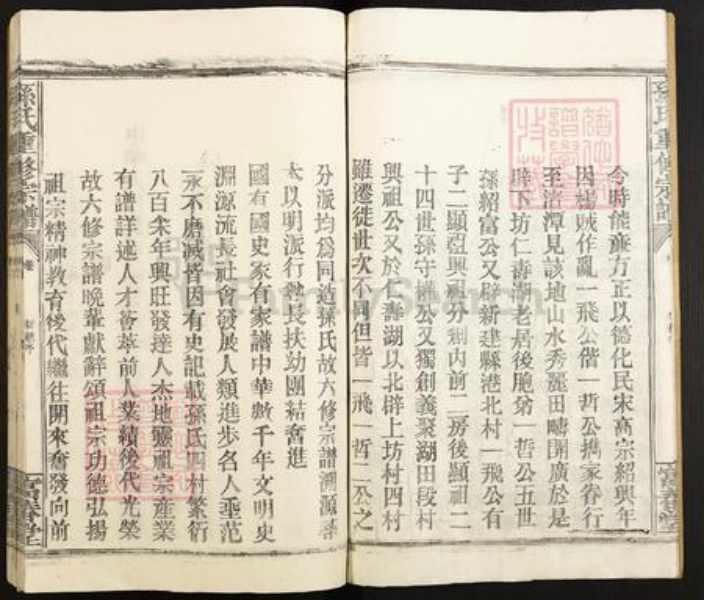 今時能雍方正以德化民宋高宗紹興年
因楊賊作亂一飛公偕一哲公擕家眷行
至治潭見該地山水秀麗田疇開廣於是
闢下坊仁壽湖老居後胞弟一哲公五世
孫紹富公又辟新建縣港北村一飛公有
子二顯亞興祖分創內前二房後顯祖二
十四世孫守權公又獨創義聚湖田段村
興祖公又於仁壽湖以北辟上坊村四村
雖遷徒世次不同但皆一飛一哲二公之
分派均爲同造孫氏故六修宗譜溯源尋
本以明派行尊長扶幼團結奮進
國有國史家有家譜中華數千年文明史
淵源流長社會發展人類進步名人垂范
永不磨滅皆因有史記載孫氏四村繁衍
八百余年興旺發達人杰地靈祖宗産業
有譜詳述人才薈萃前人業績後代光榮
故六修宗譜晚輩獻辭頌祖宗功德弘揚
祖宗精神教育後代繼往開來奮發向前
孫氏重修宗譜
富春堂
孫氏重修宗譜
富春堂
FamilySearch